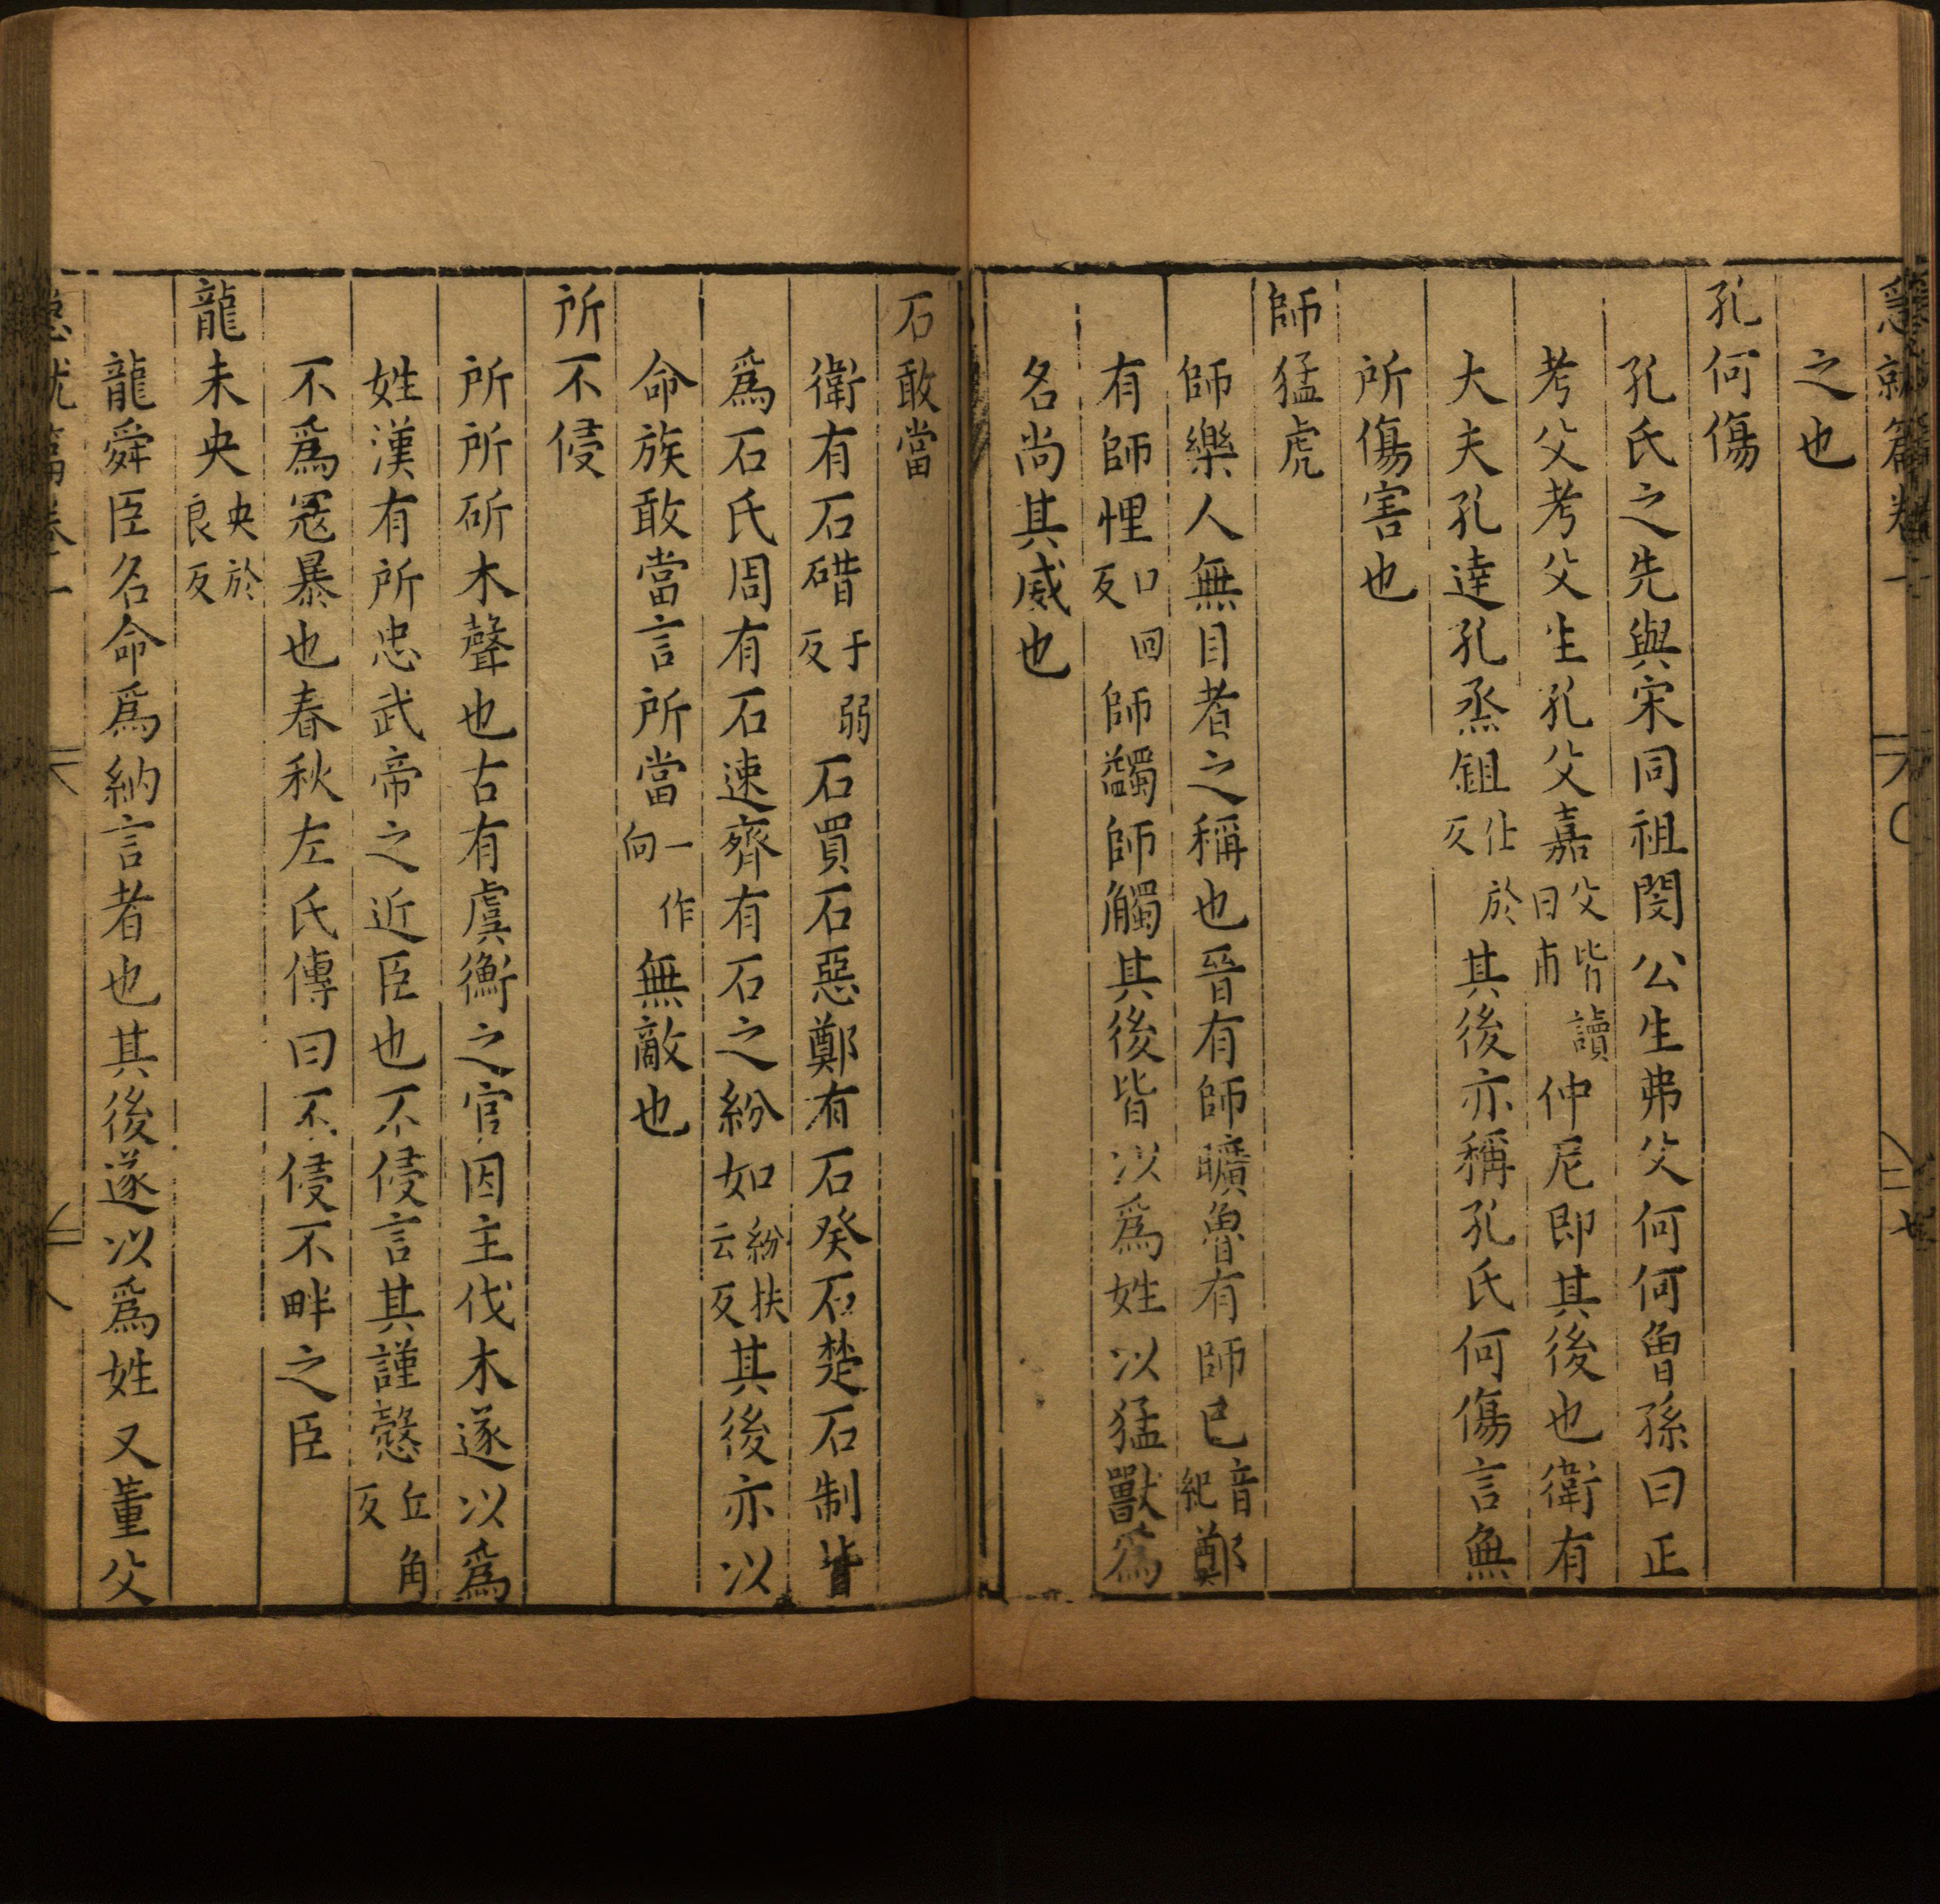 急就篇卷一
之也
孔何傷
孔氏之先與宋同祖閔公生弗父何何曾孫曰正
考父考父生孔父嘉父皆讀曰甫仲尼即其後也衛有
大夫孔達孔烝鉏仕於反其後亦稱孔氏何傷言無
所傷害也
師猛虎
師樂人無目者之稱也晉有師曠魯有師已音紀鄭
有師悝口回反師蠲師觸其後皆以爲姓以猛獸爲
名尚其威也
石敢當
衛有石碏于弱反石買石惡鄭有石癸石楚石制皆
爲石氏周有石速齊有石之紛如紛扶云反其後亦以
命族敢當言所當一作向無敵也
所不侵
所所斫木聲也古有虞衡之官因主伐木遂以爲
姓漢有所忠武帝之近臣也不侵言其謹愨丘角反
不爲寇暴也春秋左氏傳曰不侵不畔之臣
龍未央央於良反
龍舜臣名命爲納言者也其後遂以爲姓又董父
急就篇卷一